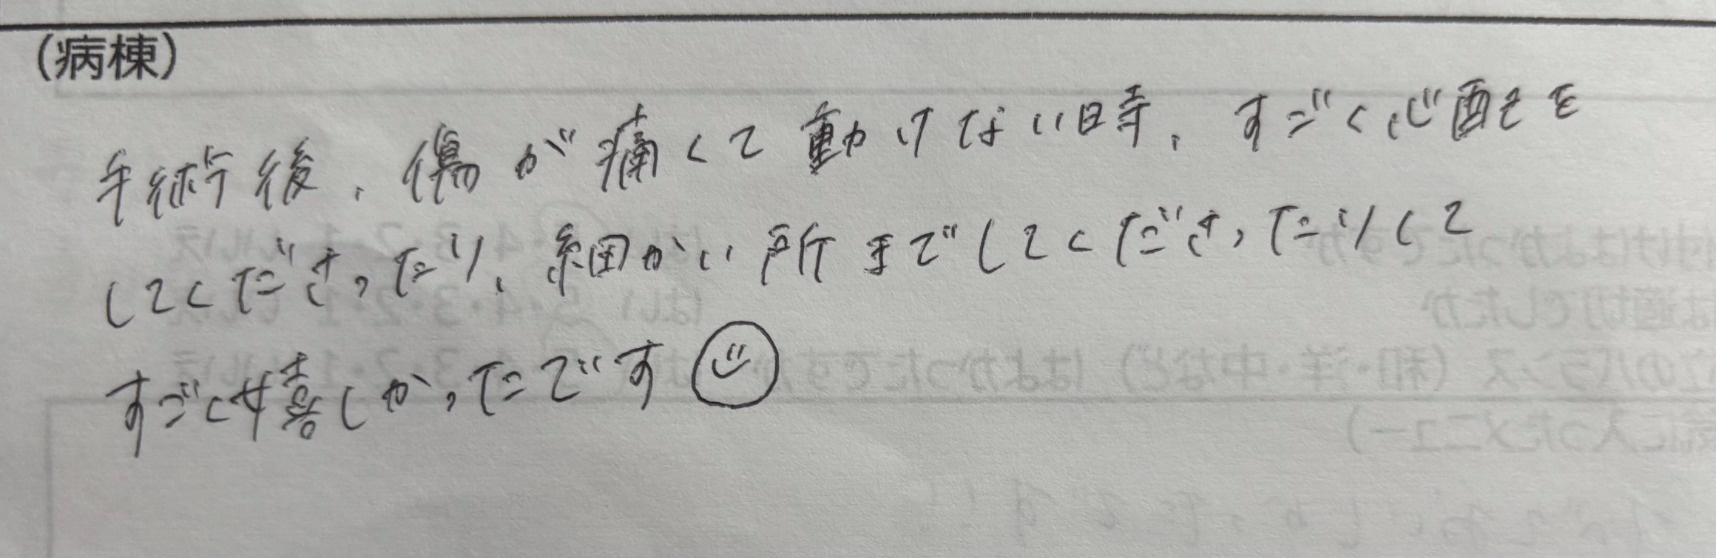 (病棟)
手術後、傷が痛くて動けない時、すごく心配を
してくださったり、細かい所までしてくださったりして
すごく嬉しかったです